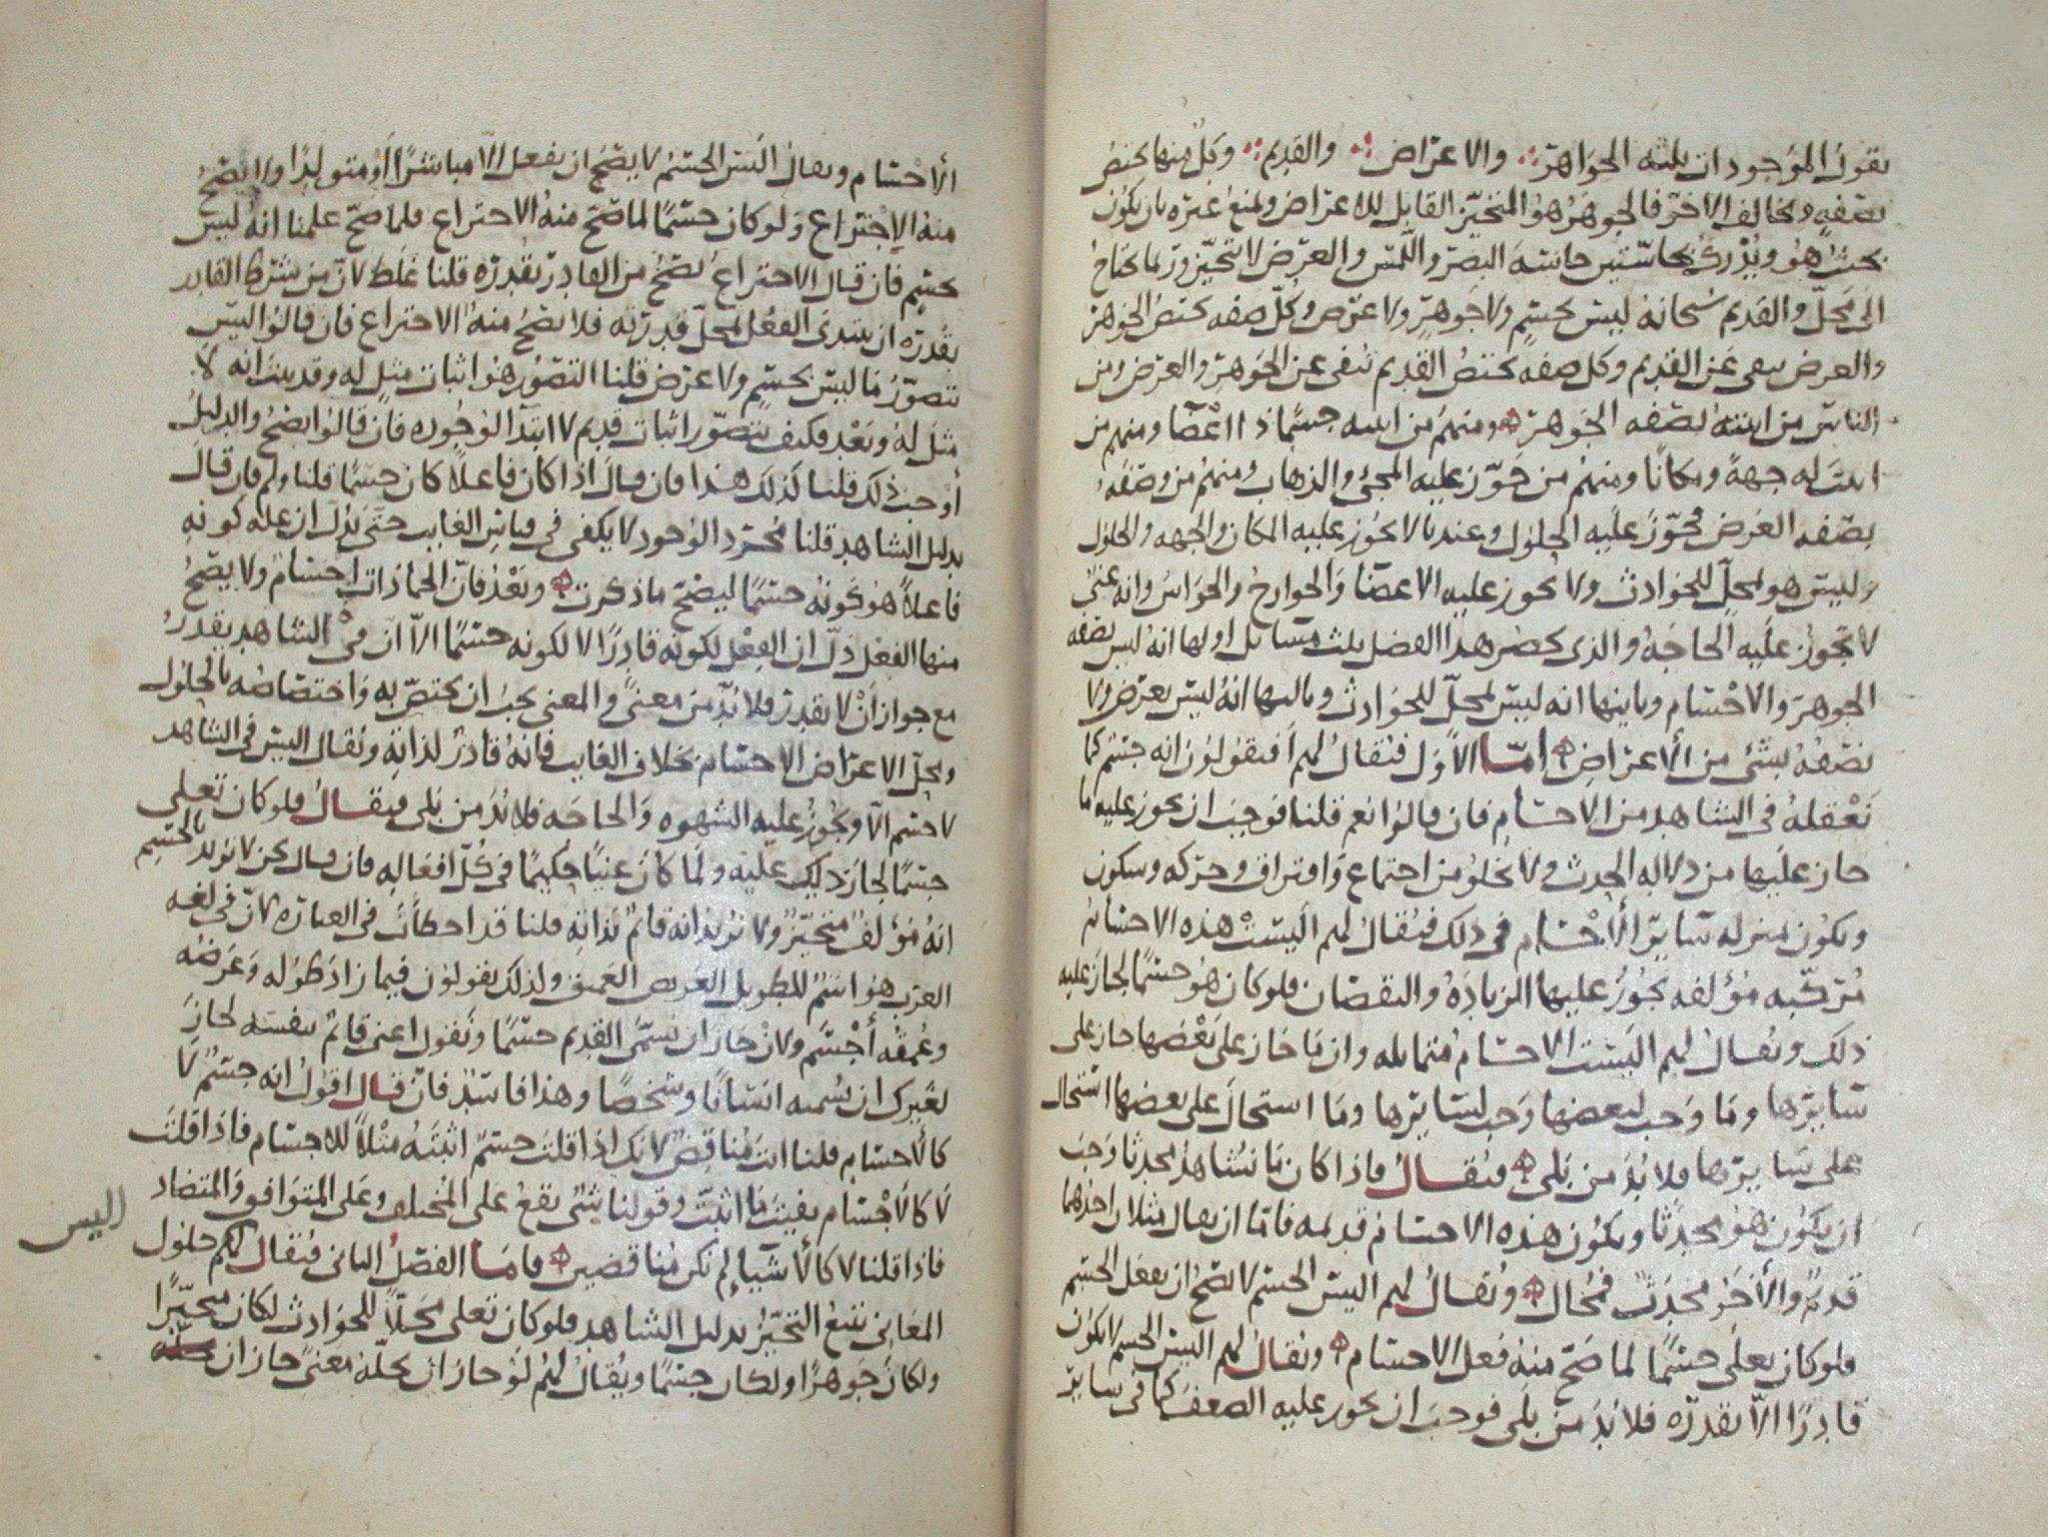 نقول الموجودات ثلثه الجواهر والاعراض والقديم وكل منها يختص
بصفه ويخالف الاخر فالجوهر هو المتحيز القابل للاعراض ويمنع غيره بان يكون
بحيث هو ويدرك بحاستين حاسه البصر واللمس والعرض لا يتحيز وربما يحتاج
الى محل والقديم سبحانه ليس بجسم ولا جوهر ولا عرض وكل صفه تختص الجوهر
والعرض تنفى عن القديم وكل صفه تختص القديم تنفى عن الجوهر والعرض ومن
الناس من اثبته بصفه الجوهر ومنهم من اثبته جسما ذا اعضا ومنهم من
اثبت له جهة ومكانا ومنهم من جوز عليه المجئ والذهاب ومنهم من وصفه
بصفه العرض فجوز عليه الحلول وعندنا لا يجوز عليه المكان والجهه والحلول
وليس هو بمحل للحوادث ولا يجوز عليه الاعضا والجوارح والحواس وانه غني
لا تجوز عليه الحاجه والذى يحصر هذا الفصل ثلث مسائل اولها انه ليس بصفه
الجوهر والاجسام وثانيها انه ليس بمحل للحوادث وثالثها انه ليس بعرض ولا
نصفه بشئ من الاعراض اما الاول فيقال لهم افتقولون انه جسم كما
نعقله في الشاهد من الاجسام فان قالوا نعم قلنا فوجب ان يجوز عليه ما
جاز عليها من دلاله الحدث ولا يخلو من اجتماع وافتراق وحركه وسكون
ويكون بمنزله سائر الاجسام في ذلك فيقال لهم اليست هذه الاجسام
مركبه مؤلفه يجوز عليها الزياده والنقصان فلو كان هو جسما لجاز عليه
ذلك ويقال لهم اليست الاجسام متماثله وان ما جاز على بعضها جاز على
سايرها وما وجب لبعضها وجب لسايرها وما استحال على بعضها استحال
على سايرها فلا بد من بلى فيقال فاذا كان ما نشاهد محدثا وجب
ان يكون هو محدثا او يكون هذه الاجسام قديمه فاما ان يقال مثلان احدهما
قديم والاخر محدث فمحال ويقال لهم اليس الجسم لا يصح ان يفعل الجسم
فلو كان تعلى جسما لما صح منه فعل الاجسام ويقال لهم اليس الجسم لا يكون
قادرا الا بقدره فلا بد من بلى فوجب ان يجوز عليه الضعف كما في ساير
الاجسام ويقال اليس الجسم لا يصح ان يفعل الا مباشرا او متولدا ولا يصح
منه الاختراع ولو كان جسما لما صح منه الاختراع فلما صح علمنا انه ليس
بجسم فان قال الاختراع يصح من القادر بقدره قلنا غلط لان من شرط القادر
بقدره ان يبتدى الفعل لمحل قدرته فلا يصح منه الاختراع فان قالوا اليس
نتصور ما ليس بجسم ولا عرض قلنا التصور هو اثبات مثل له وقد بينا انه لا
مثل له وبعد فكيف نتصور اثبات قديم لا ابتدا لوجوده فان قالوا يصح والدليل
اوجب ذلك قلنا كذلك هذا فان قال اذا كان فاعلا كان جسما قلنا ولم فان قال
بدليل الشاهد قلنا مجرد الوجود لا يكفى في قياس الغايب حتى يدل ان عله كونه
فاعلا هو كونه جسما ليصح ما ذكرت وبعد فان الجماذات اجسام ولا يصح
منها الفعل دل ان الفعل لكونه قادرا لا لكونه جسما الا ان في الشاهد يقدر
مع جواز ان لا يقدر فلا بد من معنى والمعنى يجب ان يختص به واختصاصه بالحلول
ومحل الاعراض الاجسام بخلاف الغايب فانه قادر لذاته ويقال اليس في الشاهد
لا جسم الا ويجوز عليه الشهوه والحاجه فلا بد من بلى فيقال فلو كان تعلى
جسما لجاز ذلك عليه ولما كان غنيا حكيما في كل افعاله فان قال نحن لا نريد بالجسم
انه مؤلف متحيز ولا نريد انه قائم بذاته قلنا قد اخطأت في العباره لان في لغه
العرب هو اسم للطويل العريض العميق ولذلك يقولون فيما زاد طوله وعرضه
وعمقه أجسم ولان جاز ان نسمى القديم جسما ونقول اعنى قائم بنفسه لجاز
لغيرك ان يسميه انسانا وشخصا وهذا فاسد فان قال اقول انه جسم لا
كالاجسام قلنا انت مناقض لانك اذا قلت جسم اثبته مثلا للاجسام فاذا قلت
لا كالاجسام نفيت ما اثبت وقولنا شئ يقع على المختلف وعلى المتوافق والمتضاد
فاذا قلنا لا كالاشيا لم نكن مناقضين فاما الفصل الثانى فيقال لهم حلول
المعانى يتبع التحيز بدليل الشاهد فلو كان تعلى محلا للحوادث لكان متحيزا
ولكان جوهرا ولكان جسما ويقال لهم لو جاز ان يحله معنى جاز ان
اليس